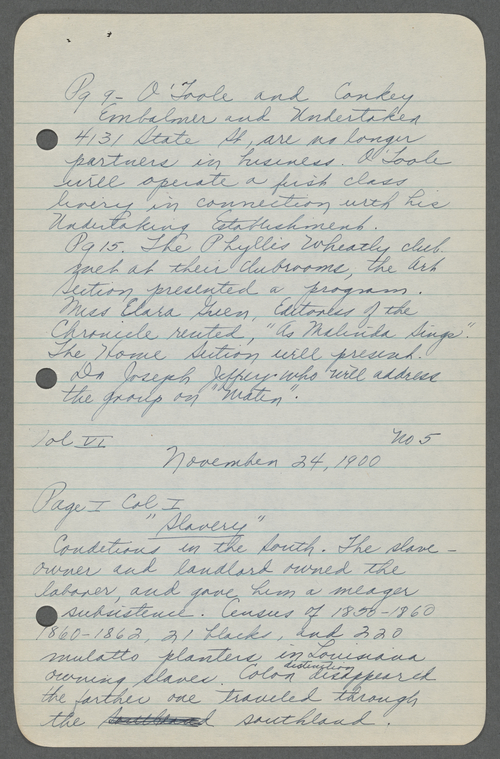 Pg 9- O'Toole and Conkey
Embalmer and Undertaker
4131 State St, are no longer
partners in business. O'Toole
will operate a first class
livery in connection with his
Undertaking Establishment.
Pg 15. The Phyllis Wheatly club
met at their clubrooms, the Art
Section presented a program.
Miss Elara Green, Editoress of the
Chronicle recited, "As Malinda Sings".
The Home Section will present.
Dr Joseph Jeffery who will address
the group on "Water".
Vol VI No 5
November 24, 1900
Page I Col I
"Slavery"
Conditions in the South. The slave-
owner and landlord owned the
laborer, and gave him a meager
subsistence. Census of 1850-1860
1860-1862, 21 blacks, and 220
mulatto planters in Louisiana
owning slaves. Color distinction disappeared
the farther one traveled through
the southland.